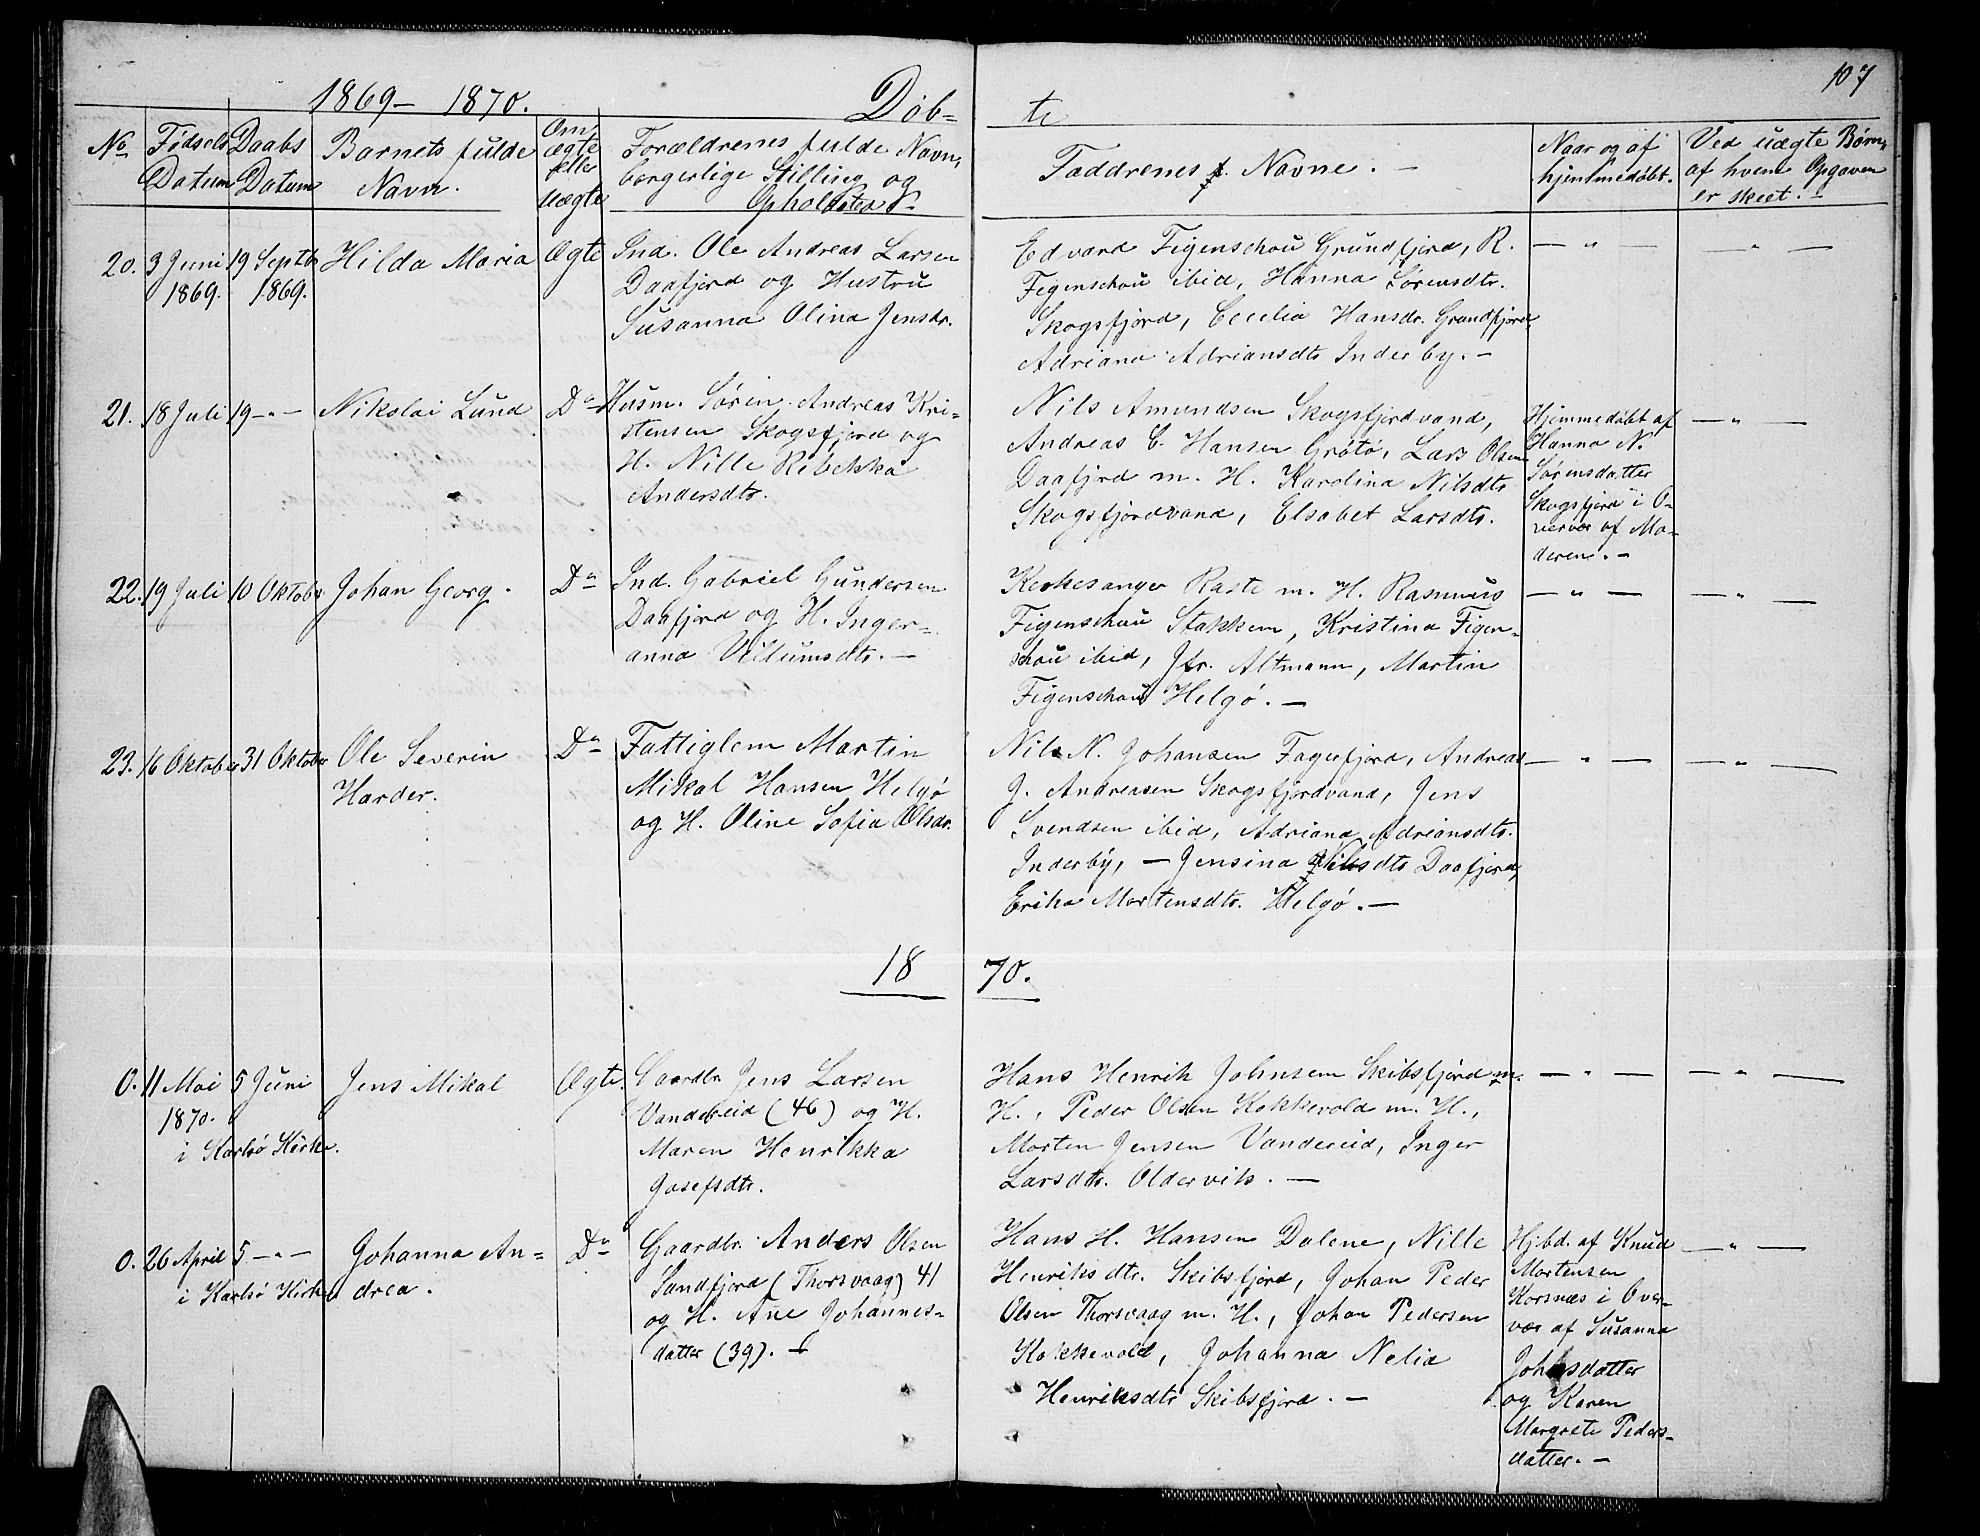 107
1869 – 1870.
Døb=
te
No
Fødsels
Datum
Daabs
Datum
Barnets fulde
Navn.
Om
ægte
eller
uægte
Forældrenes fulde Navn,
borgerlige Stilling og
Opholdsted.
Faddrenes f. Navne. –
Naar og af
hjemmedøbt.
Ved uægte Børn,
af hvem Opgaven
er skeet. –
20. 3 Juni 19 Septbr Hilda Maria Ægte Ind. Ole Andreas Larsen
1869. 1869. Daafjord og Hustru
Susanna Olina Jensdr.
Edvard Figenschou Grundfjord, R. – " – – " –
Figenschou ibid, Hanna Sørensdtr.
Skogsfjord, Cecilia Hansdr. Grundfjord
Adriana Adriansdtr Inderby. –
21. 18 Juli 19 – " – Nikolai Lund Do Husm. Søren Andreas Kri-
stensen Skogsfjord og
H. Nille Rebekka
Andersdtr.
Nils Amundsen Skogsfjordvand,
Andreas C. Hansen Grøtø, Lars Olsen
Daafjord m. H. Karolina Nilsdtr
Skogsfjordvand, Elsabet Larsdtr.
Hjemmedøbt af – " –
Hanna N.
Sørensdatter
Skogsfjord i O-
vervær af Mo-
deren. –
22. 19 Juli 10 Oktobr Johan Georg. Do Ind. Gabriel Gundersen
Daafjord og H. Inger=
anna Villumsdtr. –
Kirkesanger Raste m. H. Rasmus – " – – " –
Figenschou Stakken, Kristina Figen-
schou ibid, Jfr. Altmann, Martin
Figenschou Helgø. –
23. 16 Oktober 31 Oktober Ole Severin Do Fattiglem Martin
Harder. Mikal Hansen Helgø
og H. Oline Sofia Olsdr.
Nils N. Johansen Fagerfjord, Andreas – " – – " –
J. Andreasen Skogsfjordvand, Jens
Svendsen ibid, Adriana Adriansdtr.
Inderby, – Jensina Nilsdtr Daafjord,
Erika Mortensdtr. Helgø. –
18 70.
0. 11 Mai 5 Juni Jens Mikal Ægte. Gaardbr. Jens Larsen
1870. Vandereid (46) og H.
i Karlsø Kirke. Maren Henrikka
Josefsdtr.
Hans Henrik Johnsen Skibsfjord m. – " – – " –
H., Peder Olsen Kokkevold m. H.,
Morten Jensen Vandereid, Inger
Larsdtr. Oldervik. –
0. 26 April 5 – " – Johanna An= Do Gaardbr. Anders Olsen
i Karlsø Kirke drea. Sandfjord (Thorsvaag) 41
og H. Ane Johannes-
datter (39). –
Hans H. Hansen Dalene, Nille
Henriksdtr. Skibsfjord, Johan Peder
Olsen Thorsvaag m. H., Johan Pedersen
Kokkevold, Johanna Nelia
Henriksdtr Skibsfjord. –
Hjbd. af Knud – " –
Mortensen
Korsnæs i Over-
vær af Susanna
Johnsdatter
og Karen
Margrete Peders-
datter. –